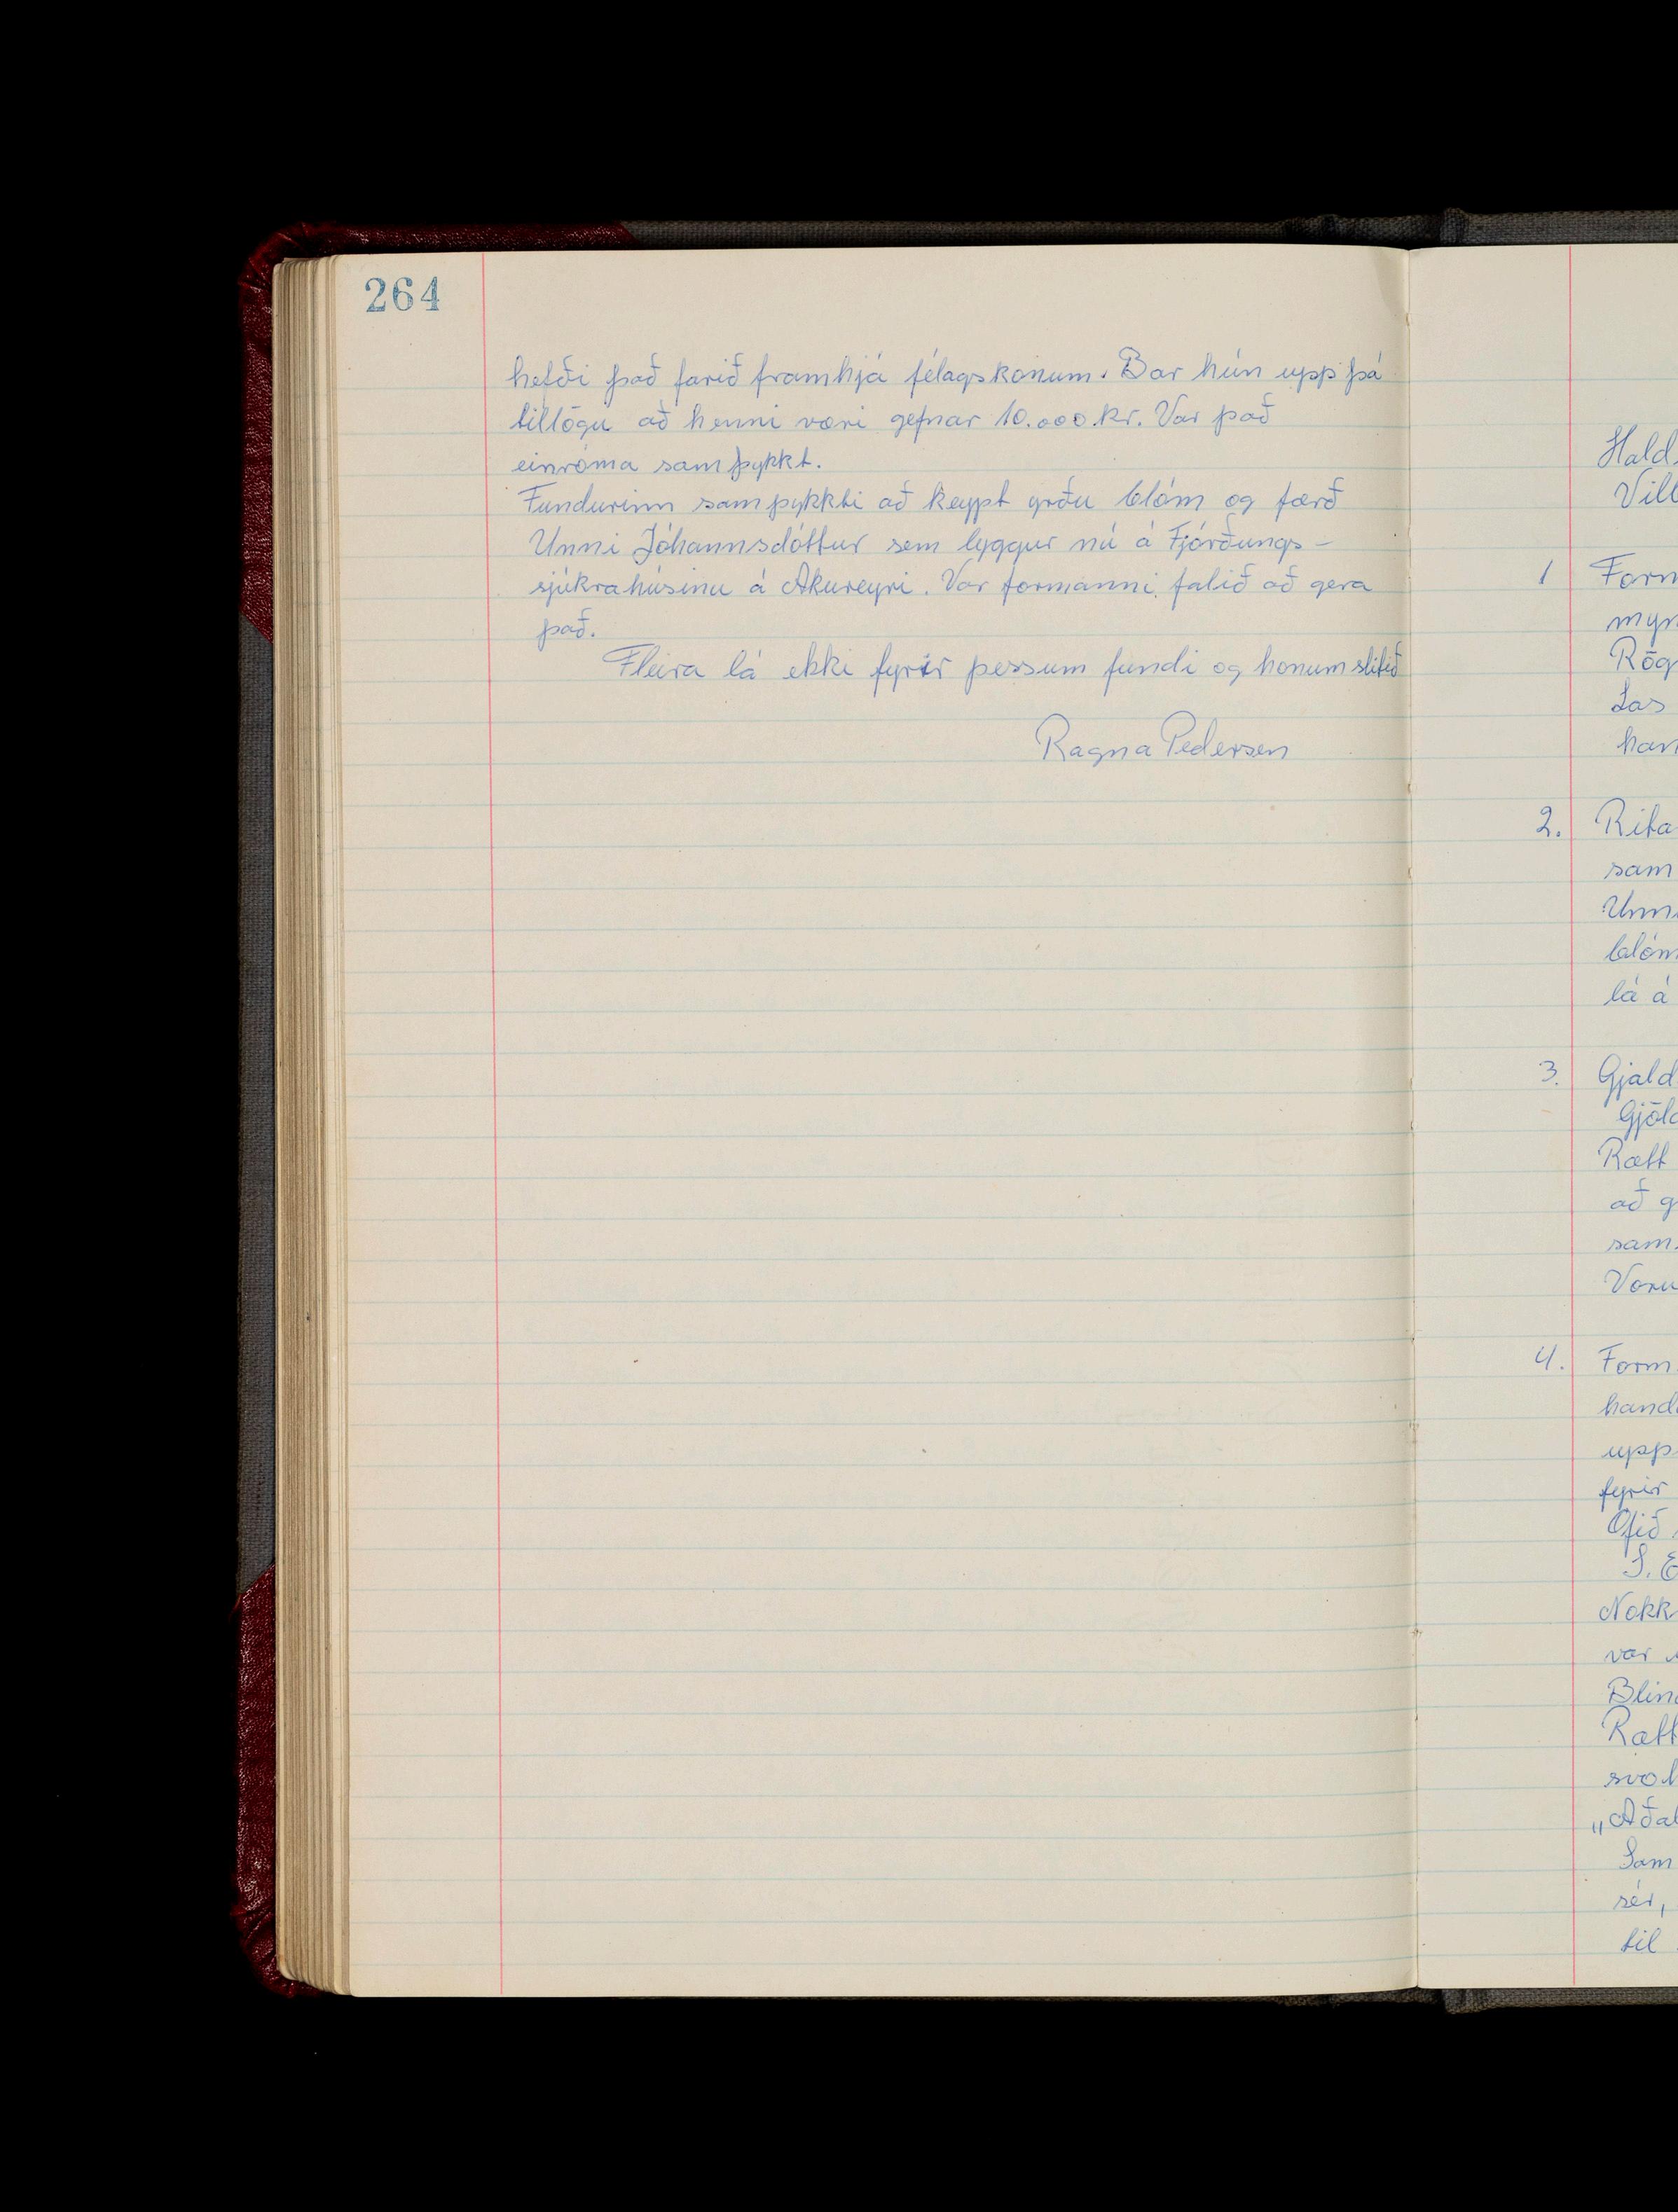 264
hefði það farið framhjá félagskonum. Bar hún upp þá
tillögu að henni væri gefnar 10.000.kr. Var það
einróma samþykkt.
Fundurinn samþykkti að keypt yrðu blóm og færð
Unni Jóhannsdóttur sem lyggur nú á Fjórðungs-
sjúkrahúsinu á Akureyri. Var formanni falið að gera
það.
Fleira lá ekki fyrir þessum fundi og honum slitið
Ragna Pedersen
Hald
Vill
1 Form
myn
Rög
Las
han
2. Rita
sam
Unn
blóm
lá á
3. Gjald
Gjöld
Rætt
að g
sam
Voru
4. Form
hand
upp
fyrir
Ofið
S. E
Nokk
var
Blin
Rætt
svoh
„Aðal
Sam
sér,
til